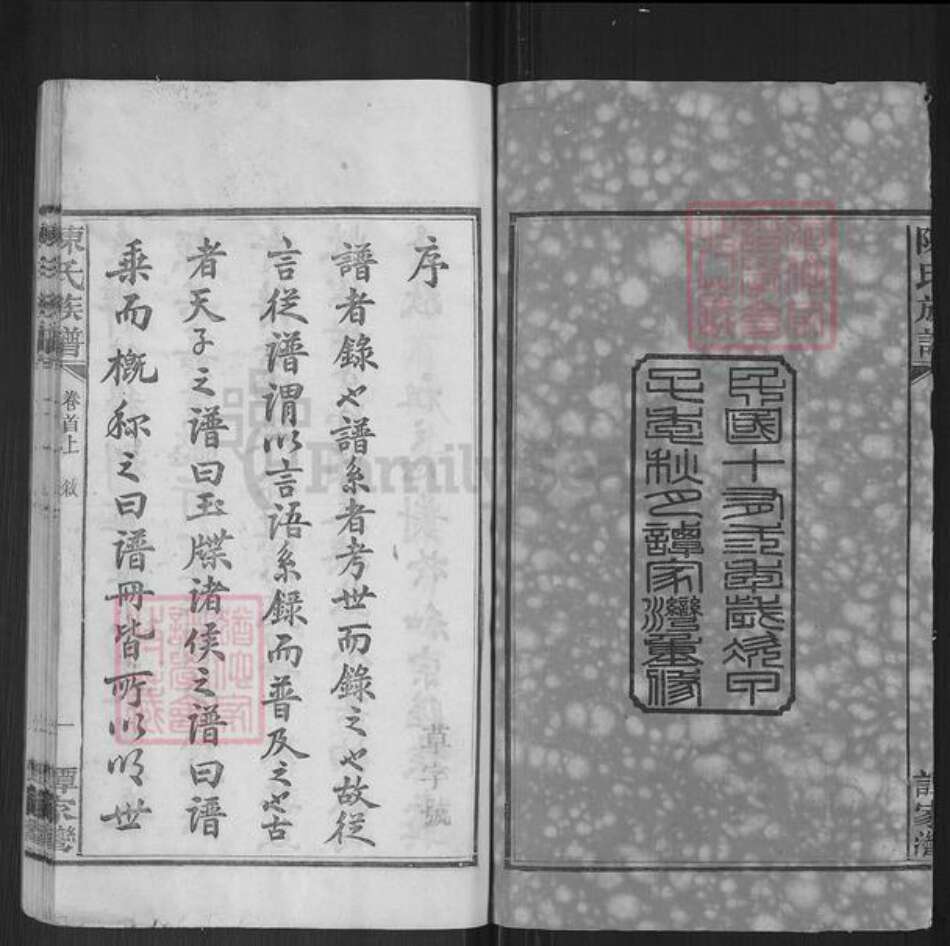 陳氏族譜
譚家灣
民國十有三年歲次甲
子季秋月譚家灣重修
序
草字號
譜者錄也譜系者考世而錄之也故從
言從譜謂以言語系錄而普及之也古
者天子之譜曰玉牒諸侯之譜曰譜
乘而概称之曰譜冊皆所以明世
陳氏族譜 卷首上 敘 一 譚家灣